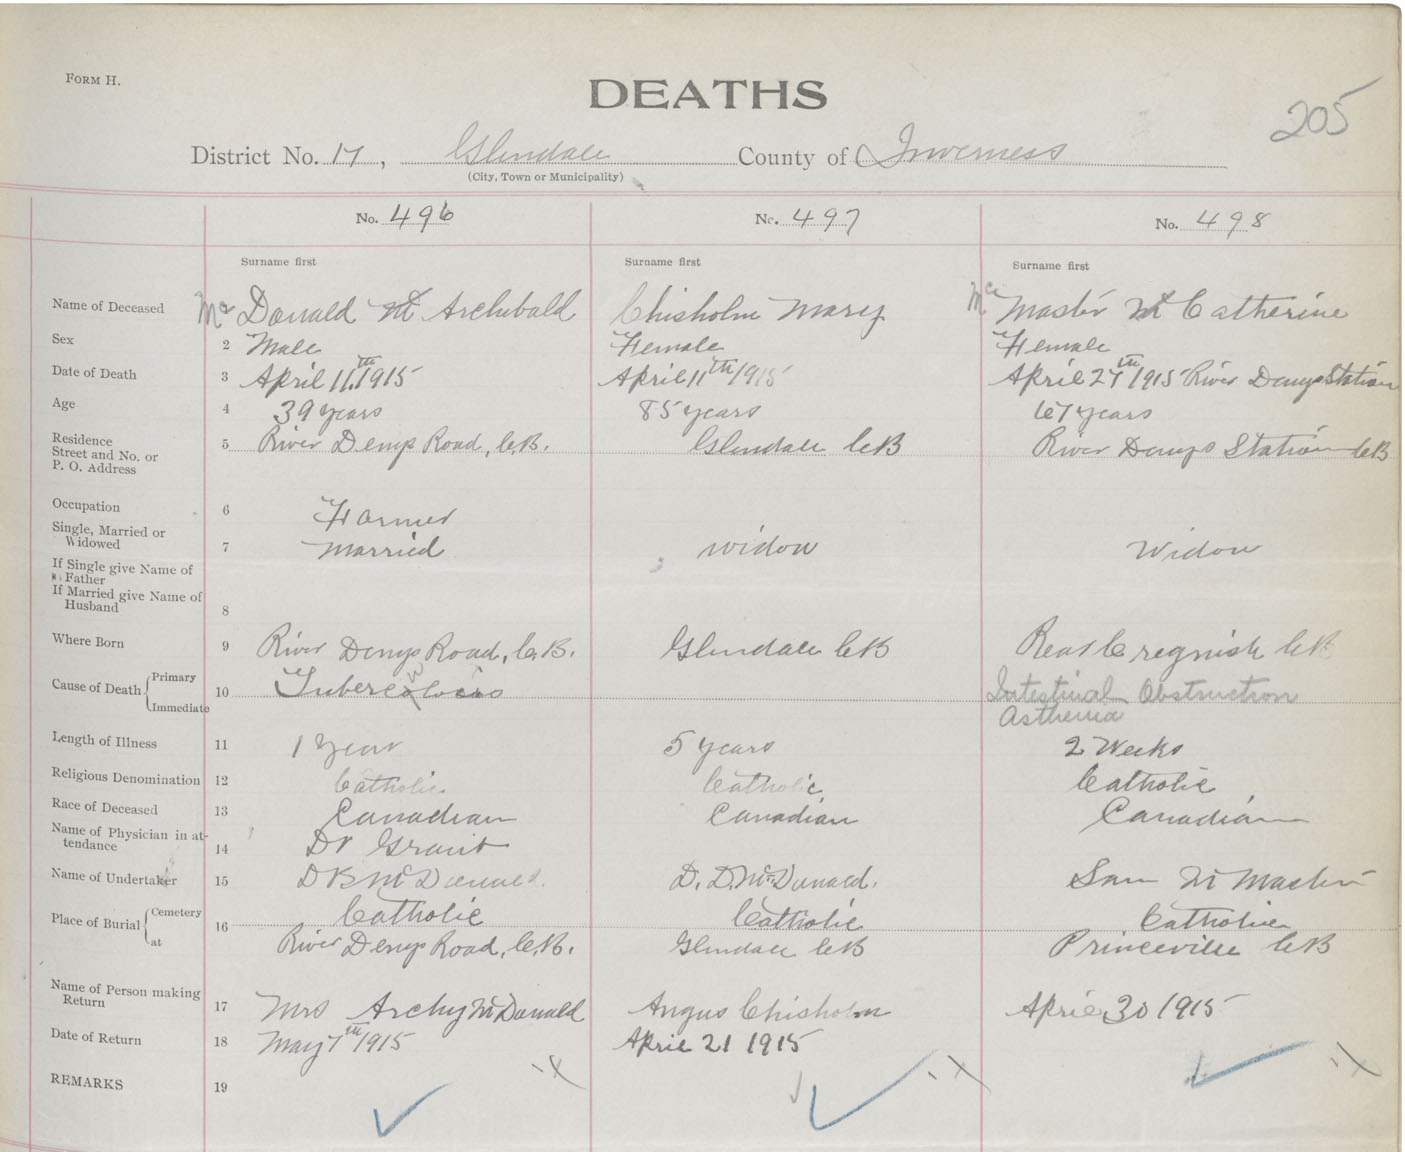 FORM H.
DEATHS
205
District No. 17, Glendale County of Inverness
(City, Town or Municipality)
No. 496 No. 497 No. 498
Surname first Surname first Surname first
Name of Deceased Mc Donald Archibald Chisholm Mary Mc Master Catherine
Sex 2 Male Female Female
Date of Death 3 April 11th 1915 April 11th 1915 April 27th 1915 River Denys Station
Age 4 39 years 85 years 67 years
Residence
Street and No. or
P. O. Address 5 River Denys Road, C.B. Glendale C B River Denys Station C B
Occupation 6 Farmer
Single, Married or
Widowed 7 Married Widow Widow
If Single give Name of
Father
If Married give Name of
Husband 8
Where Born 9 River Denys Road, C.B. Glendale C B Rear Cregnish C B
Cause of Death Primary
Immediate 10 Tuberculosis Intestinal Obstruction
Asthema
Length of Illness 11 1 Year 5 years 2 Weeks
Religious Denomination 12 Catholic Catholic Catholic
Race of Deceased 13 Canadian Canadian Canadian
Name of Physician in at-
tendance 14 Dr Grant
Name of Undertaker 15 D B McDonald. D. D. McDonald. San McMaster
Place of Burial Cemetery
at 16 Catholic Catholic Catholic
River Denys Road, C.B. Glendale C B Princeville C B
Name of Person making
Return 17 Mrs Archy McDonald Angus Chisholm April 30 1915
Date of Return 18 May 7th 1915 April 21 1915
REMARKS 19